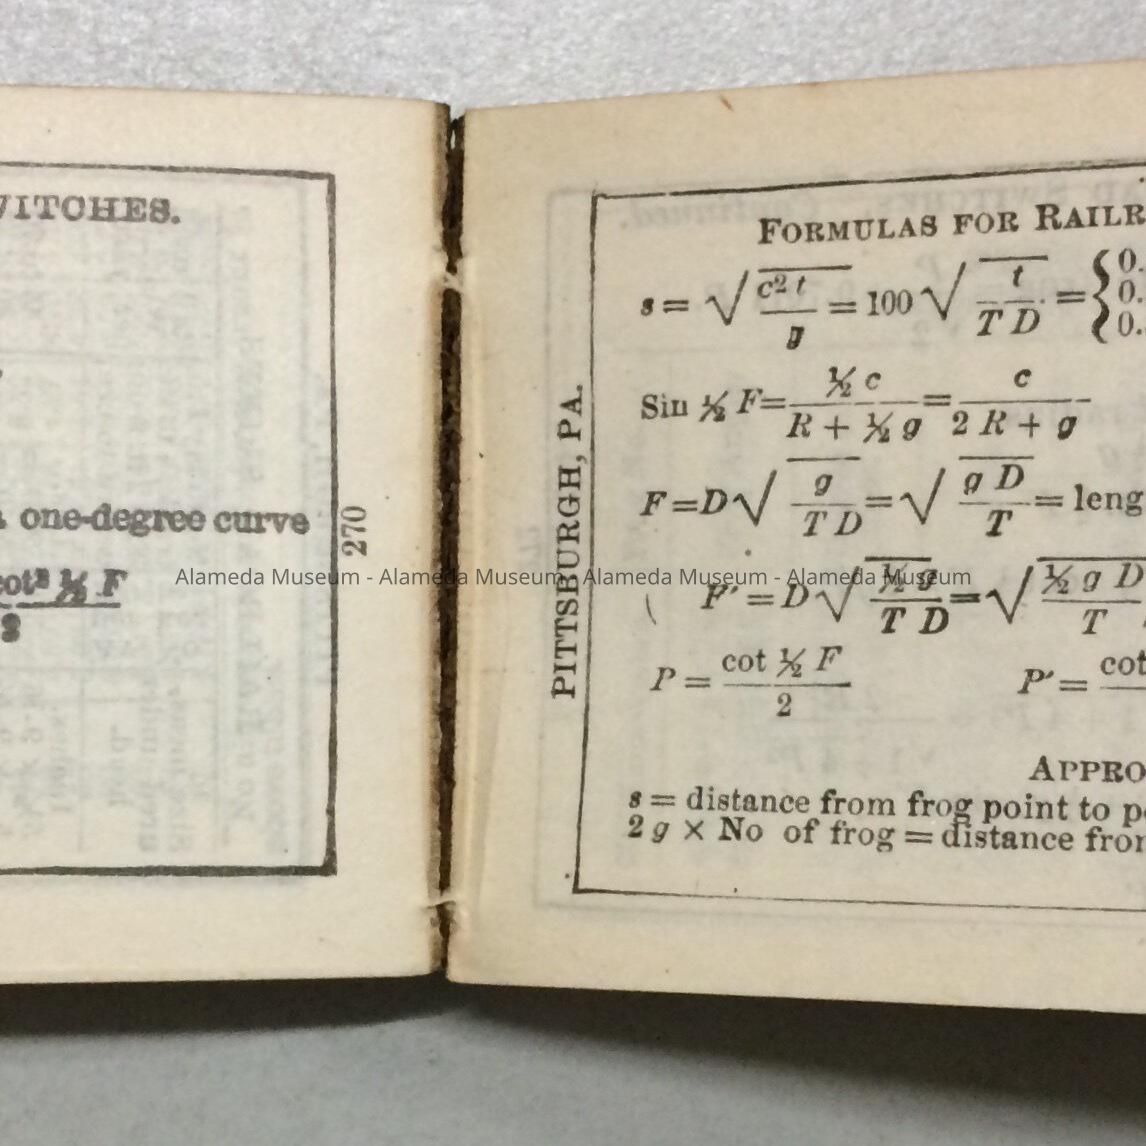 WITCHES.
one-degree curve
cot² ½ F
270
PITTSBURGH, PA.
FORMULAS FOR RAILR
s = √(c² t / g) = 100 √(t / T D) = {0. 0. 0.
Sin ½ F = ½ c / (R + ½ g) = c / (2 R + g)
F = D √(g / T D) = √(g D / T) = leng
F' = D √(½ g / T D) = √(½ g D / T)
P = cot ½ F / 2 P' = cot
APPRO
s = distance from frog point to p
2 g × No of frog = distance from
Alameda Museum - Alameda Museum - Alameda Museum - Alameda Museum